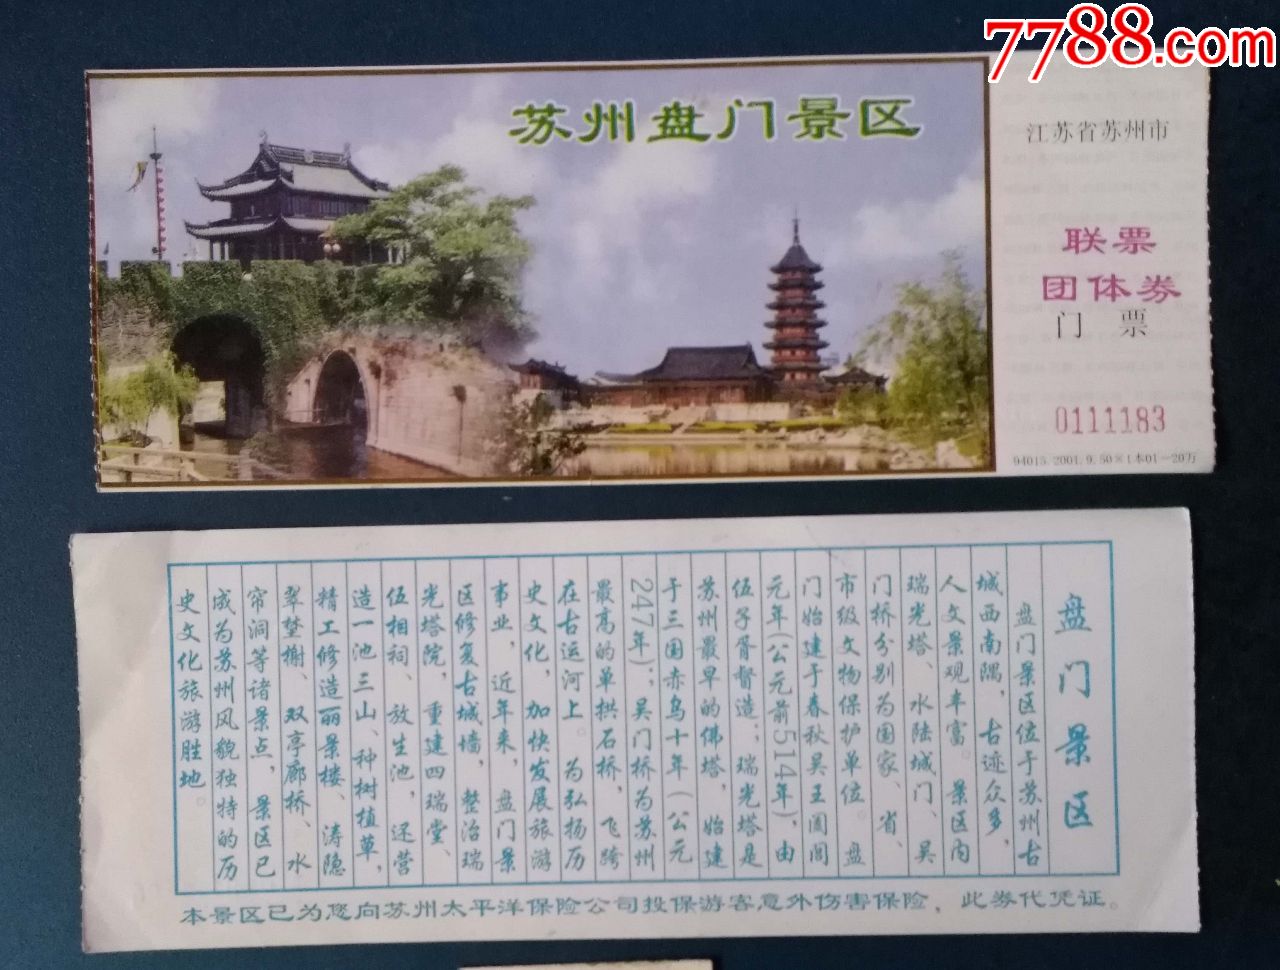 7788.com
苏州盘门景区
江苏省苏州市
联票
团体券
门 票
0111183
94015.2001.9.50×1本01—20万
盘门景区
盘门景区位于苏州古
城西南隅,古迹众多,
人文景观丰富。景区内
瑞光塔、水陆城门、吴
门桥分别为国家、省、
市级文物保护单位。盘
门始建于春秋吴王阖闾
元年(公元前514年),由
伍子胥督造;瑞光塔是
苏州最早的佛塔,始建
于三国赤乌十年(公元
247年);吴门桥为苏州
最高的单拱石桥,飞跨
在古运河上。为弘扬历
史文化,加快发展旅游
事业,近年来,盘门景
区修复古城墙,整治瑞
光塔院,重建四瑞堂、
伍相祠、放生池,还营
造一池三山、种树植草,
精工修造丽景楼、涛隐
翠埜榭、双亭廊桥、水
帘洞等诸景点,景区已
成为苏州风貌独特的历
史文化旅游胜地。
本景区已为您向苏州太平洋保险公司投保游客意外伤害保险,此券代凭证。